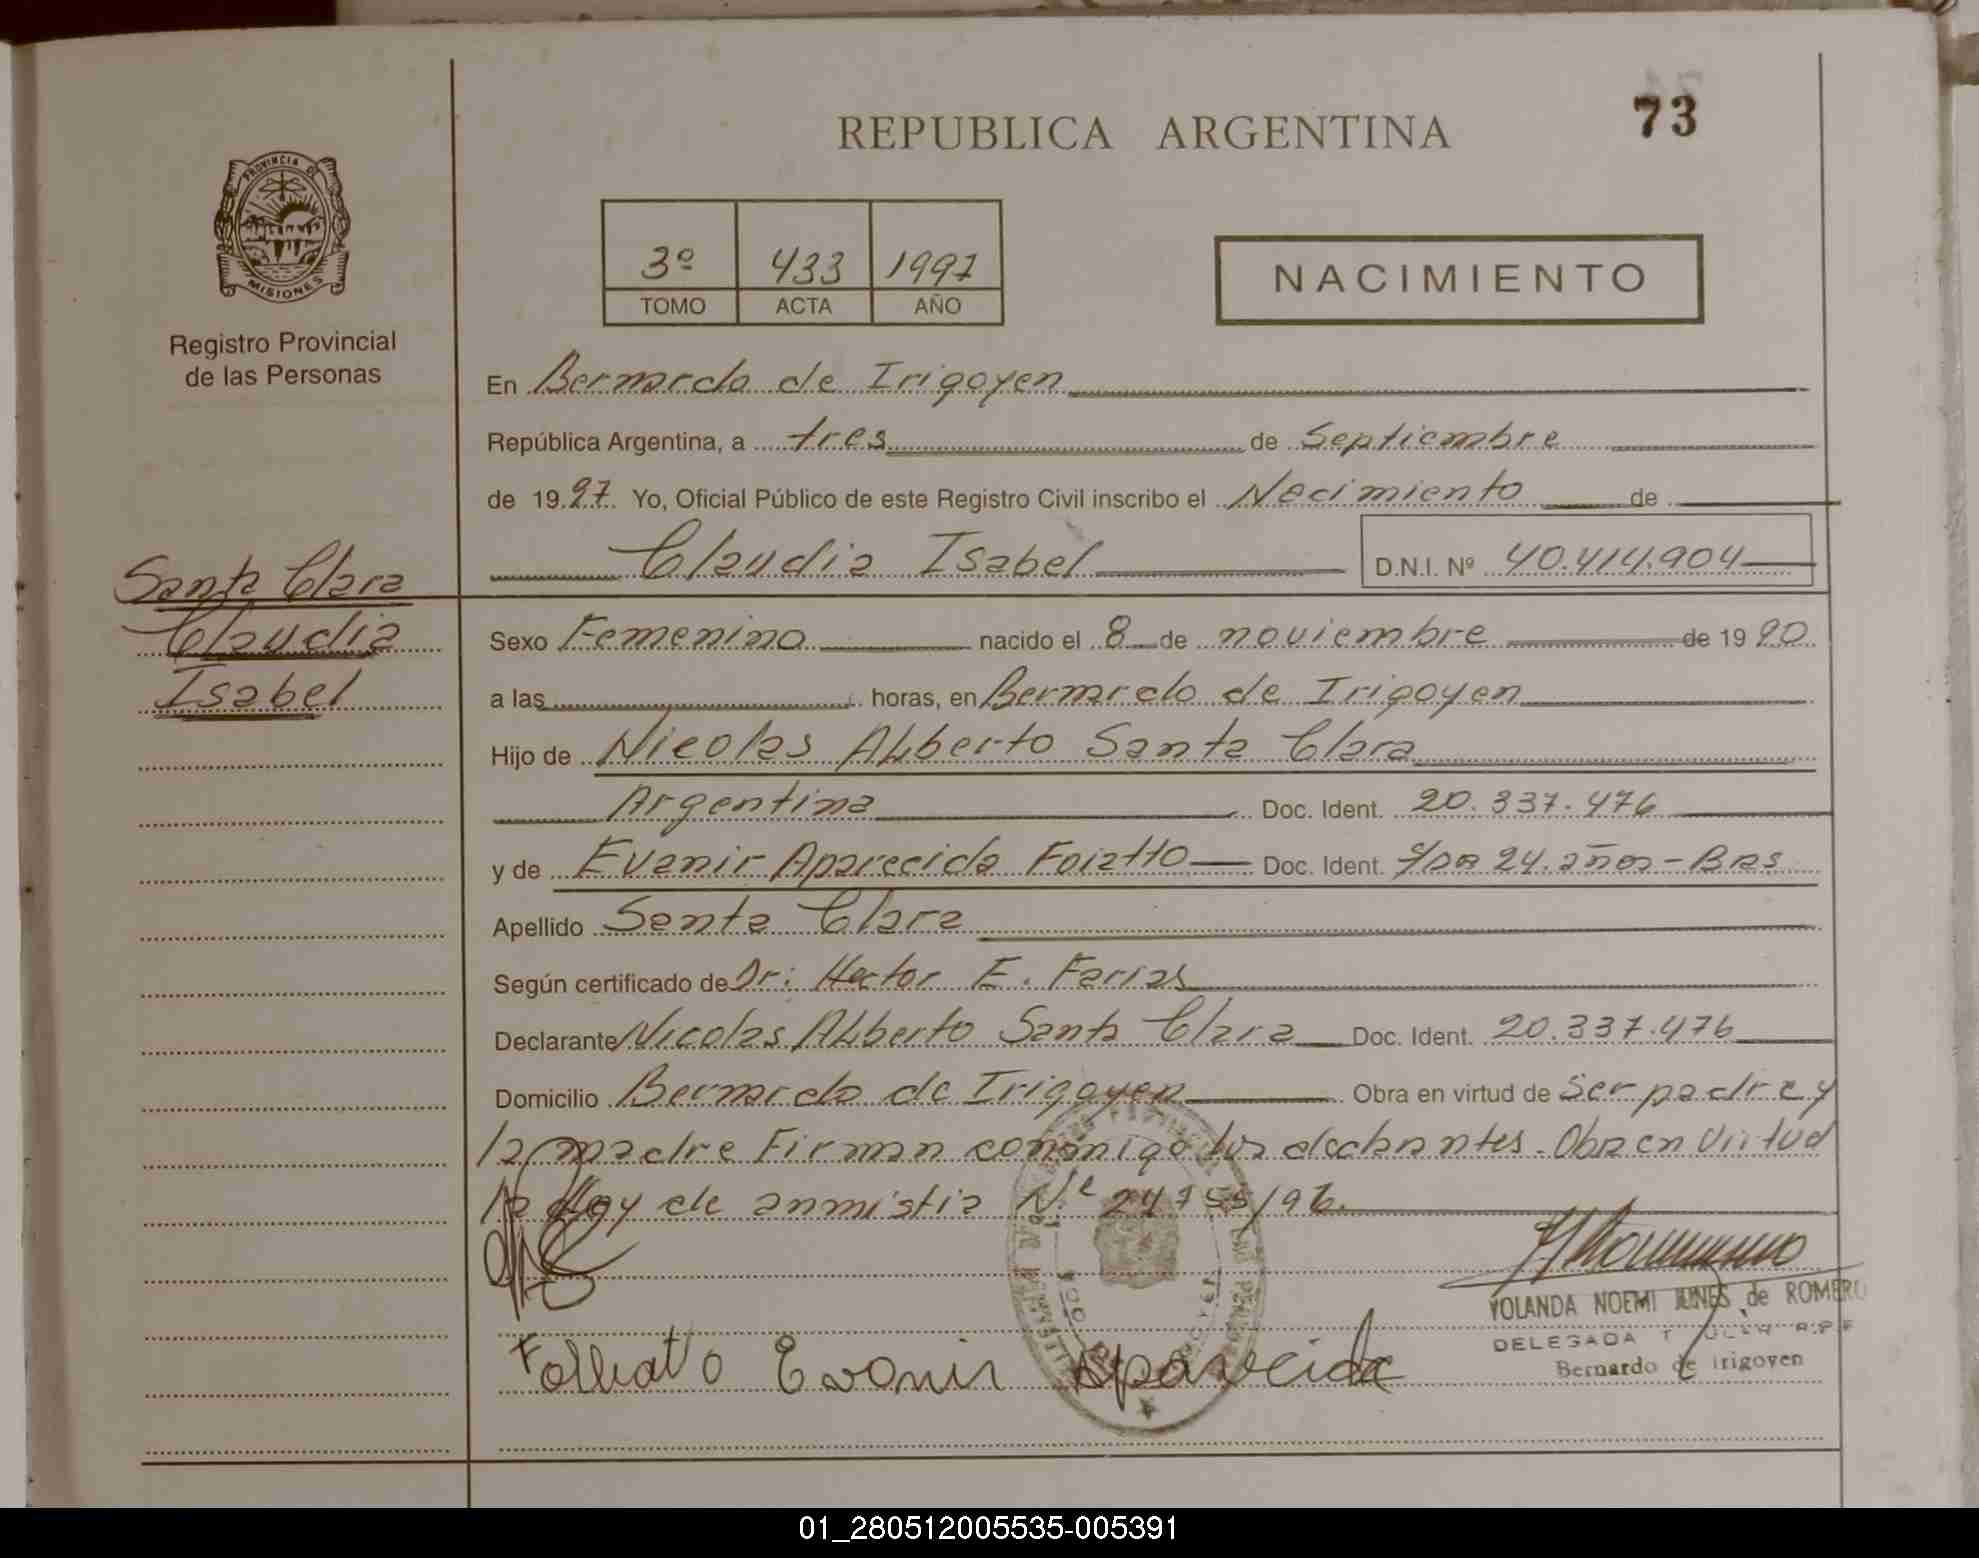 73
REPUBLICA ARGENTINA
PROVINCIA DE
MISIONES
Registro Provincial
de las Personas
3º 433 1997
TOMO ACTA AÑO
NACIMIENTO
En Bernardo de Irigoyen
República Argentina, a tres de Septiembre
de 1997 Yo, Oficial Público de este Registro Civil inscribo el Nacimiento de
Claudia Isabel D.N.I. Nº 40.414.904
Santa Clara
Claudia
Isabel
Sexo Femenino nacido el 8 de noviembre de 1990
a las horas, en Bernardo de Irigoyen
Hijo de Nicolas Alberto Santa Clara
Argentina Doc. Ident. 20.337.476
y de Evanir Aparecida Foiatto Doc. Ident. 24 años - Bras
Apellido Santa Clara
Según certificado de Dr: Hector E. Farias
Declarante Nicolas Alberto Santa Clara Doc. Ident. 20.337.476
Domicilio Bernardo de Irigoyen Obra en virtud de Ser padre y
la madre Firman conmigo los declarantes. Obra en Virtud
la ley de anmistia Nº 24755/96.
YOLANDA NOEMI de ROMERO
DELEGADA R.P.P
Bernardo de Irigoyen
Evanir Aparecida
01_280512005535-005391